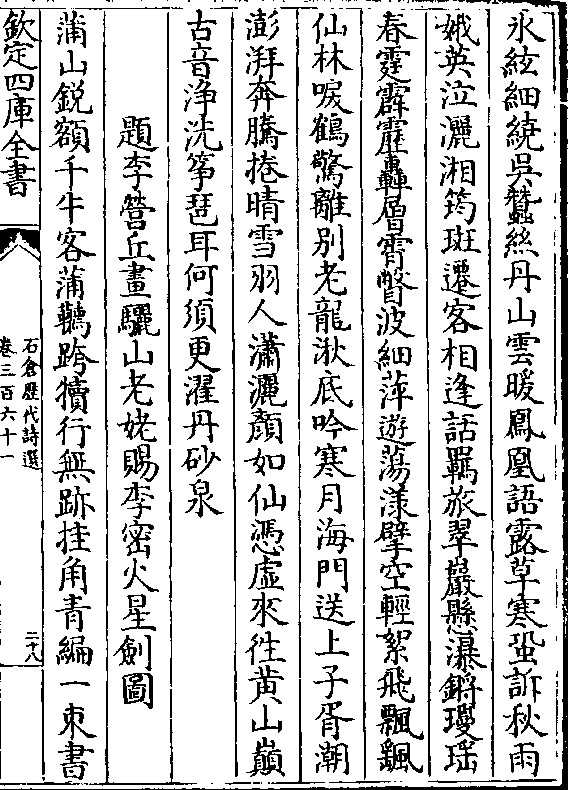 氷絃細繞吳蠶絲丹山雲暖鳳凰語露草寒蛩訴秋雨
娥英泣灑湘筠斑遷客相逢話羈旅翠巖懸瀑鏘瓊瑶
春霆霹靂轟層霄瞥波細萍遊蕩漾擘空輕絮飛飄颻
仙林唳鶴驚離别老龍湫底吟寒月海門送上子胥潮
澎湃奔騰捲晴雪羽人瀟灑顔如仙憑虚來徃黄山巔
古音浄洗箏琶耳何須更濯丹砂泉
題李營丘畫驪山老姥賜李密火星劍圖
蒲山鋭額千牛客蒲韉跨犢行無跡挂角青編一束書
欽定四庫全書
石倉歷代詩選
卷三百六十一
二十八